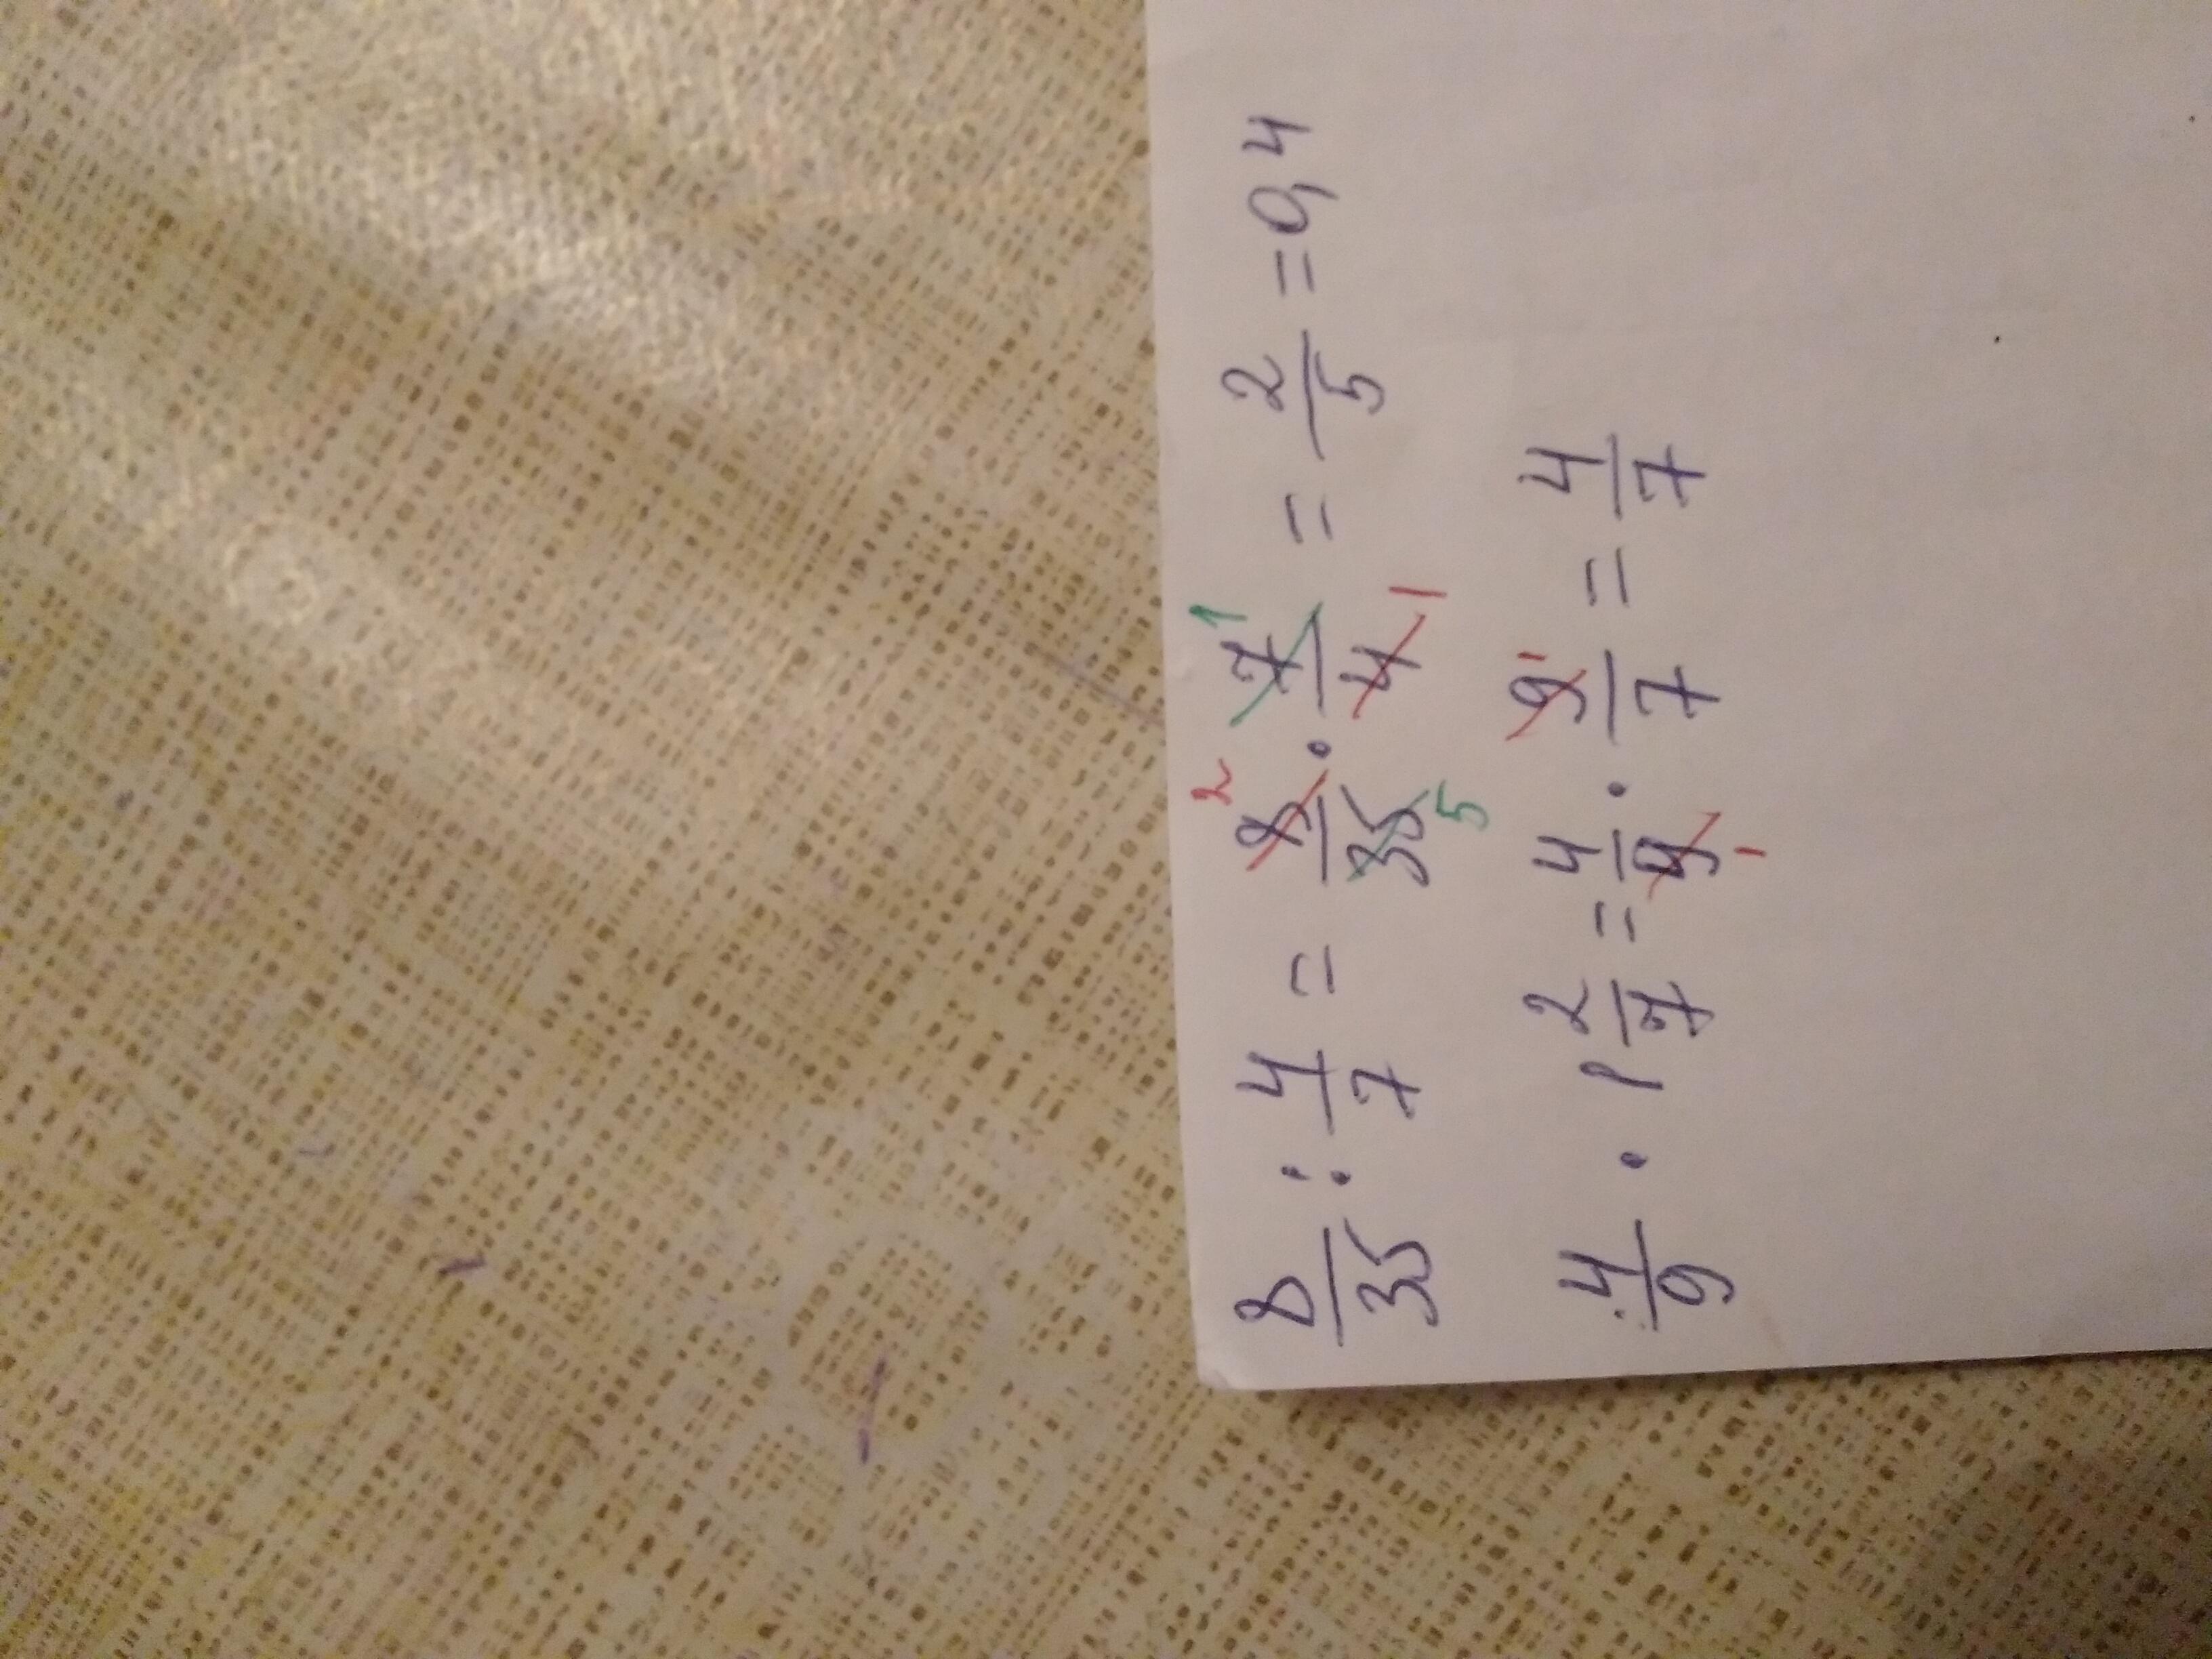 8/35 : 4/7 = 8/35 · 7/4 = 2/5 = 0,4
4/9 · 1 2/7 = 4/9 · 9/7 = 4/7